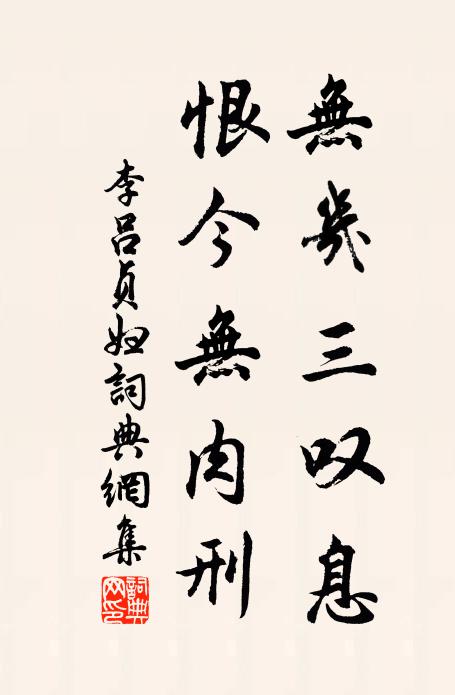 無幾三叹息
恨今無肉刑
李呂貞妇詞典網集
詞典網印